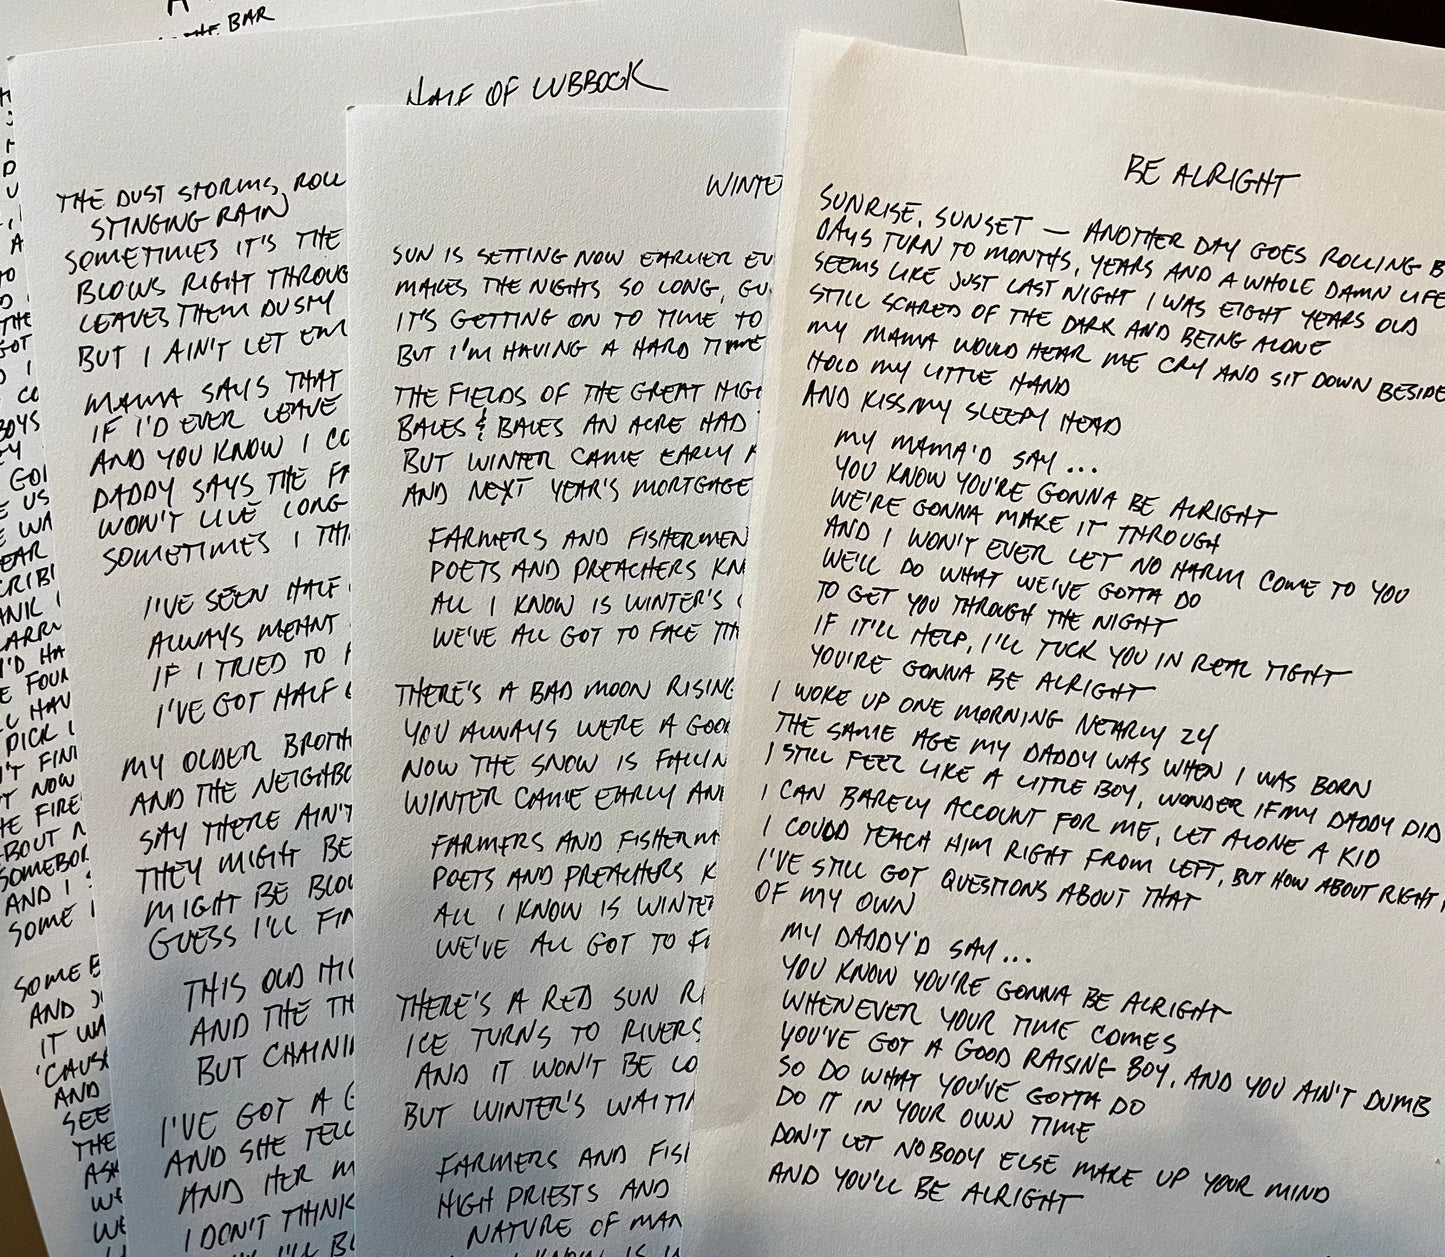 THE BAR
HALF OF LUBBOCK
THE DUST STORMS, ROLL
STINGING RAIN
SOMETIMES IT'S THE
BLOWS RIGHT THROUG
LEAVES THEM DUSTY
BUT I AIN'T LET EM
MAMA SAYS THAT
IF I'D EVER LEAVE
AND YOU KNOW I CO
DADDY SAYS THE FA
WON'T LIVE LONG
SOMETIMES I THI
I'VE SEEN HALF
ALWAYS MEANT
IF I TRIED TO
I'VE GOT HALF
MY OLDER BROTH
AND THE NEIGHBO
SAY THERE AIN'T
THEY MIGHT BE
MIGHT BE BLOW
GUESS I'LL FIN
THIS OLD HIG
AND THE TH
BUT CHAININ
I'VE GOT A G
AND SHE TELL
AND HER M
I DON'T THINK
WINTE
SUN IS SETTING NOW EARLIER EV
MAKES THE NIGHTS SO LONG, GU
IT'S GETTING ON TO TIME TO
BUT I'M HAVING A HARD TIME
THE FIELDS OF THE GREAT HIG
BALES & BALES AN ACRE HAD
BUT WINTER CAME EARLY
AND NEXT YEAR'S MORTGAGE
FARMERS AND FISHERMEN
POETS AND PREACHERS KN
ALL I KNOW IS WINTER'S
WE'VE ALL GOT TO FACE TH
THERE'S A BAD MOON RISING
YOU ALWAYS WERE A GOO
NOW THE SNOW IS FALLIN
WINTER CAME EARLY AN
FARMERS AND FISHERM
POETS AND PREACHERS K
ALL I KNOW IS WINTE
WE'VE ALL GOT TO F
THERE'S A RED SUN R
ICE TURNS TO RIVERS
AND IT WON'T BE LO
BUT WINTER'S WAITIN
FARMERS AND FISH
HIGH PRIESTS AND
NATURE OF MAN
BE ALRIGHT
SUNRISE, SUNSET — ANOTHER DAY GOES ROLLING B
DAYS TURN TO MONTHS, YEARS AND A WHOLE DAMN LIFE
SEEMS LIKE JUST LAST NIGHT I WAS EIGHT YEARS OLD
STILL SCARED OF THE DARK AND BEING ALONE
MY MAMA WOULD HEAR ME CRY AND SIT DOWN BESIDE
HOLD MY LITTLE HAND
AND KISS MY SLEEPY HEAD
MY MAMA'D SAY...
YOU KNOW YOU'RE GONNA BE ALRIGHT
WE'RE GONNA MAKE IT THROUGH
AND I WON'T EVER LET NO HARM COME TO YOU
WE'LL DO WHAT WE'VE GOTTA DO
TO GET YOU THROUGH THE NIGHT
IF IT'LL HELP, I'LL TUCK YOU IN REAL TIGHT
YOU'RE GONNA BE ALRIGHT
I WOKE UP ONE MORNING NEARLY 24
THE SAME AGE MY DADDY WAS WHEN I WAS BORN
I STILL FEEL LIKE A LITTLE BOY, WONDER IF MY DADDY DID
I CAN BARELY ACCOUNT FOR ME, LET ALONE A KID
I COULD TEACH HIM RIGHT FROM LEFT, BUT HOW ABOUT RIGHT
I'VE STILL GOT QUESTIONS ABOUT THAT
OF MY OWN
MY DADDY'D SAY...
YOU KNOW YOU'RE GONNA BE ALRIGHT
WHENEVER YOUR TIME COMES
YOU'VE GOT A GOOD RAISING BOY, AND YOU AIN'T DUMB
SO DO WHAT YOU'VE GOTTA DO
DO IT IN YOUR OWN TIME
DON'T LET NOBODY ELSE MAKE UP YOUR MIND
AND YOU'LL BE ALRIGHT